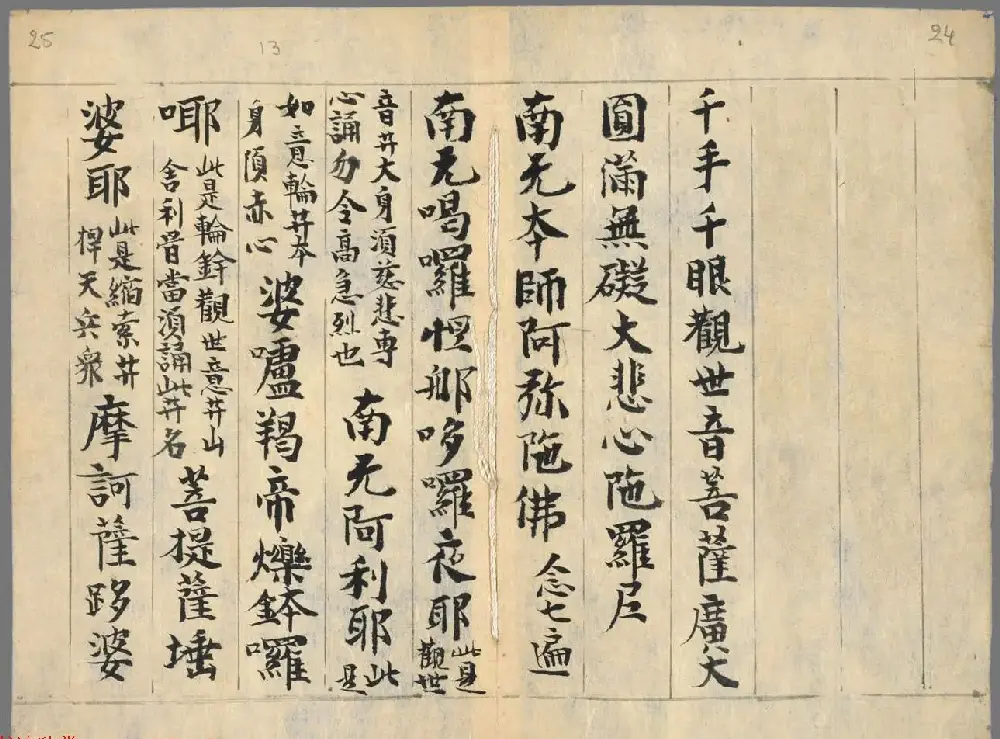 24
千手千眼觀世音菩薩廣大
圓滿無礙大悲心陁羅尼
南无夲師阿弥陁佛 念七遍
南无喝囉怛那哆囉夜耶 此是觀世
音井大身須慈悲專心誦勿令高急烈也 南无阿利耶 此是
如意輪井夲身湏赤心 婆嚧羯帝爍鉢囉
耶 此是輪鋒觀世意井山舍利晋當湏誦此井名 菩提薩埵
婆耶 此是縮索井押天兵衆 摩訶薩跢婆
25
13